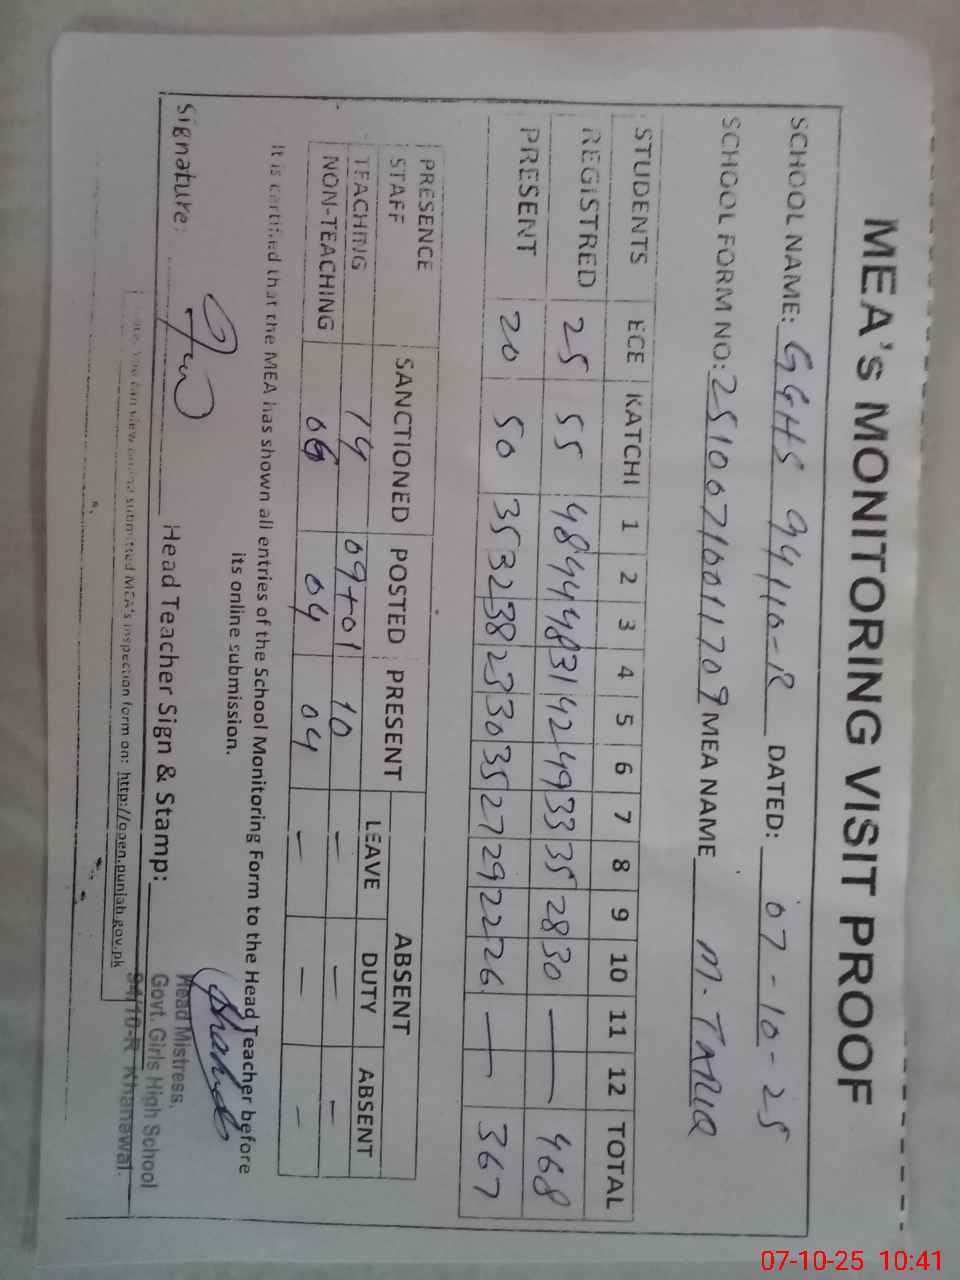 MEA's MONITORING VISIT PROOF
SCHOOL NAME: GGHS 94/10-R DATED: 07-10-25
SCHOOL FORM NO: 25100710011709 MEA NAME M. TARIQ
STUDENTS ECE KATCHI 1 2 3 4 5 6 7 8 9 10 11 12 TOTAL
REGISTRED 25 55 48 44 48 31 42 49 33 35 28 30 — — 468
PRESENT 20 50 35 32 38 23 30 35 27 29 22 26 — — 367
PRESENCE SANCTIONED POSTED PRESENT ABSENT
STAFF LEAVE DUTY ABSENT
TEACHING 14 09+01 10 — — —
NON-TEACHING 06 04 04 — — —
It is certified that the MEA has shown all entries of the School Monitoring Form to the Head Teacher before
its online submission.
Signature: Head Teacher Sign & Stamp:
Head Mistress.
Govt. Girls High School
94/10-R Khanewal.
You can view submitted MEA's inspection form on: http://open.punjab.gov.pk
07-10-25 10:41